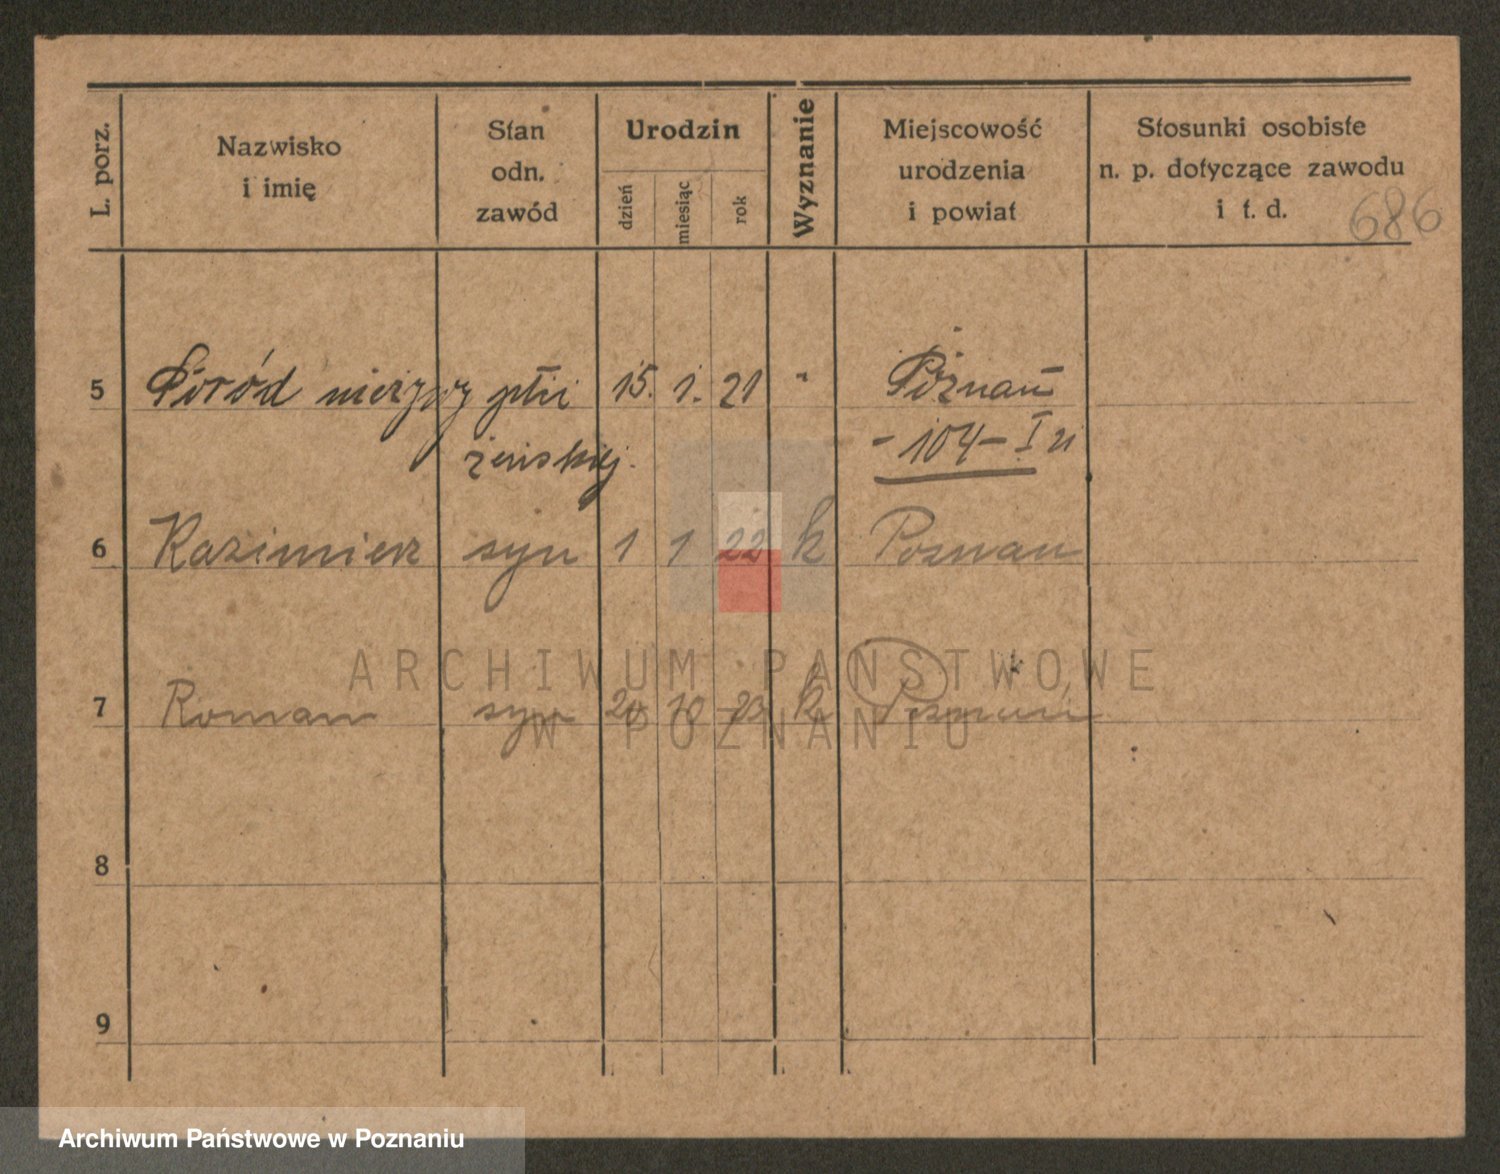 L. porz.
Nazwisko
i imię
Stan
odn.
zawód
Urodzin
dzień
miesiąc
rok
Wyznanie
Miejscowość
urodzenia
i powiat
Stosunki osobiste
n. p. dotyczące zawodu
i t. d.
686
5 Poród nieżywy płci 15. 1. 21 " Poznań
żeńskiej. - 104 - I 21
6 Kazimierz syn 1 1 22 k Poznan
7 Roman syn 24 10 23 k Poznań
8
9
ARCHIWUM PAŃSTWOWE
W POZNANIU
Archiwum Państwowe w Poznaniu